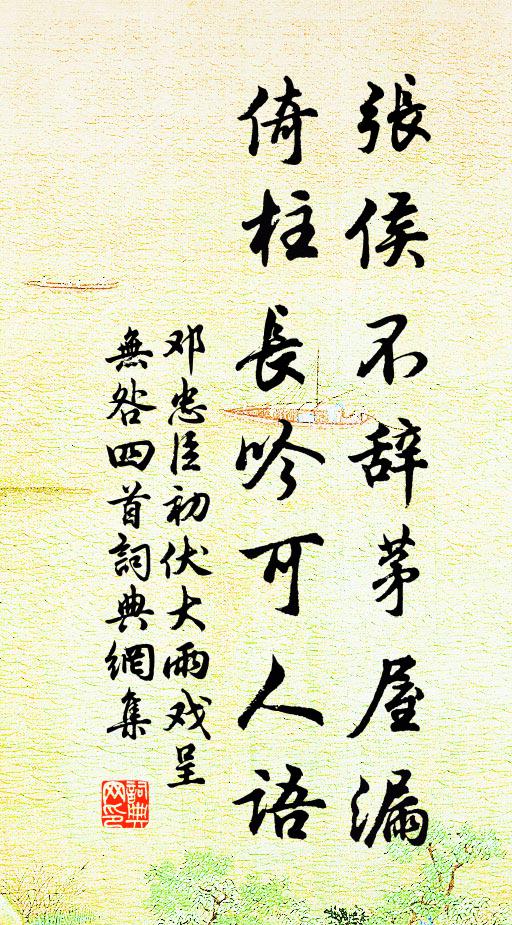 張侯不辞茅屋漏
倚柱長吟可人語
邓忠臣初伏大雨戏呈
無咎四首詞典網集
詞典
网印